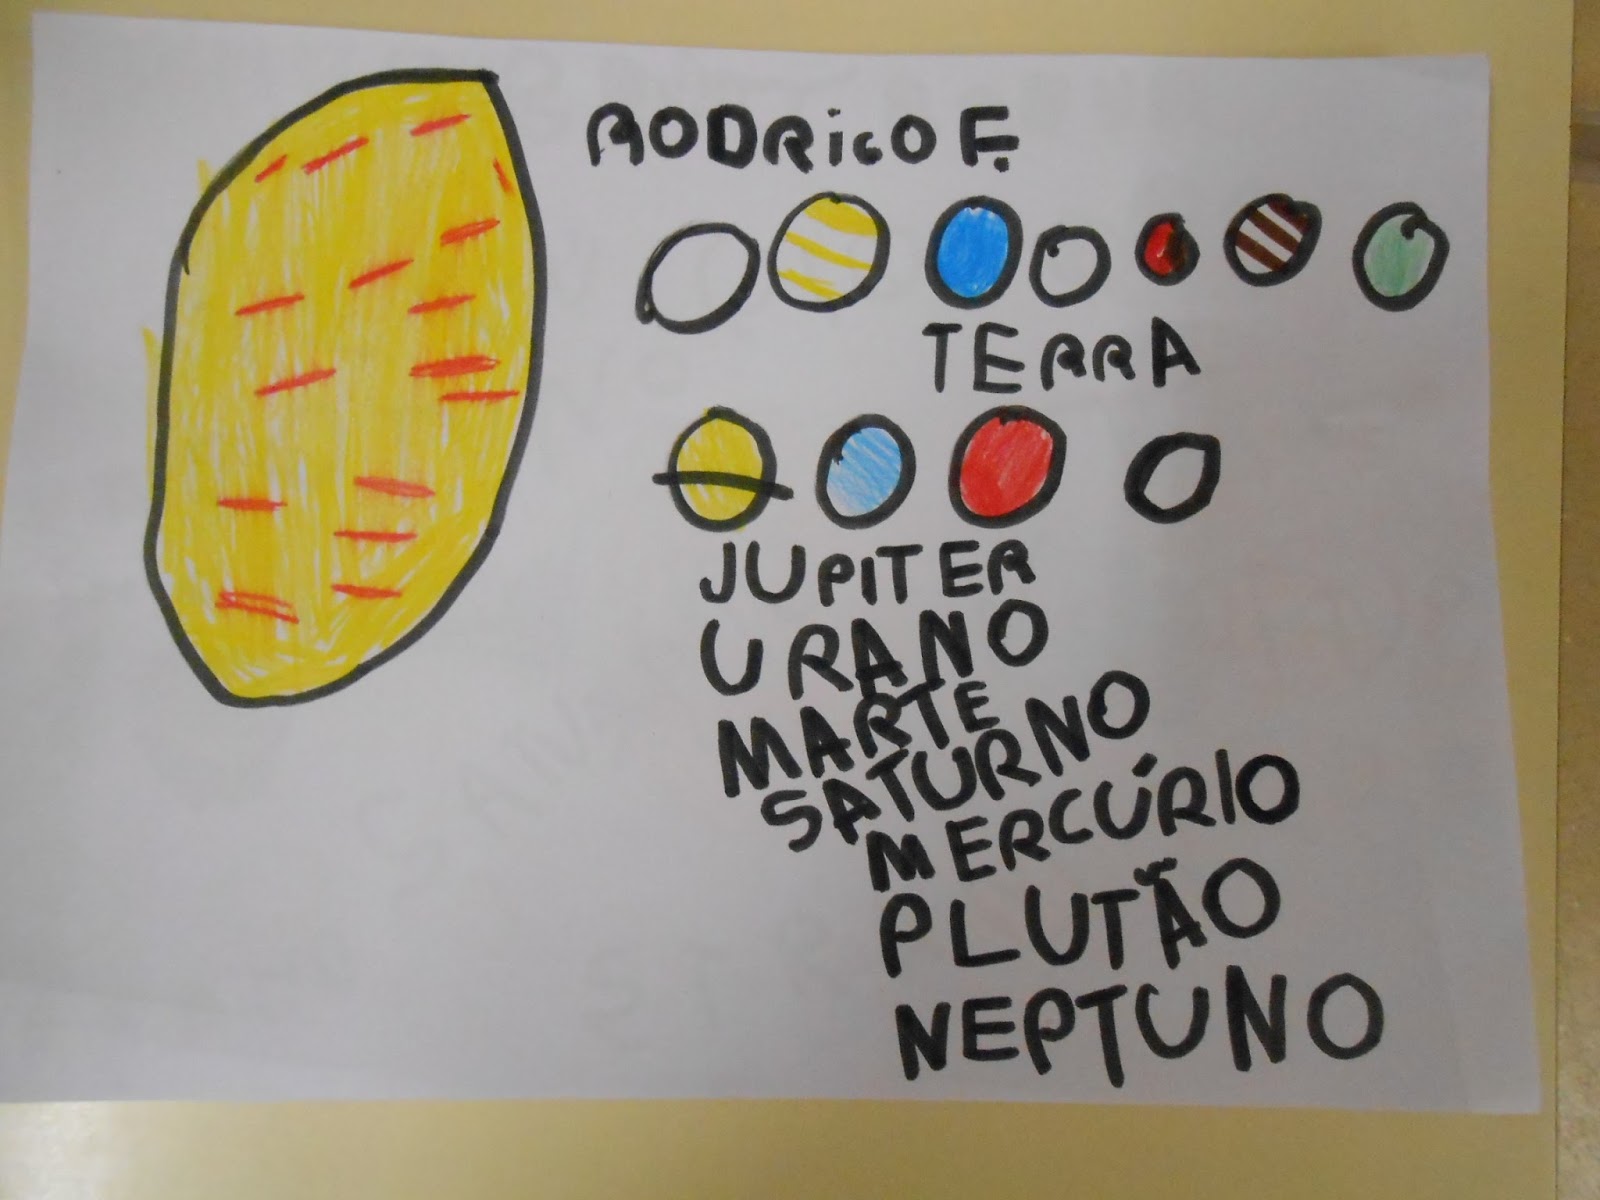 RODRIGO F.
TERRA
JUPITER
URANO
MARTE
SATURNO
MERCÚRIO
PLUTÃO
NEPTUNO